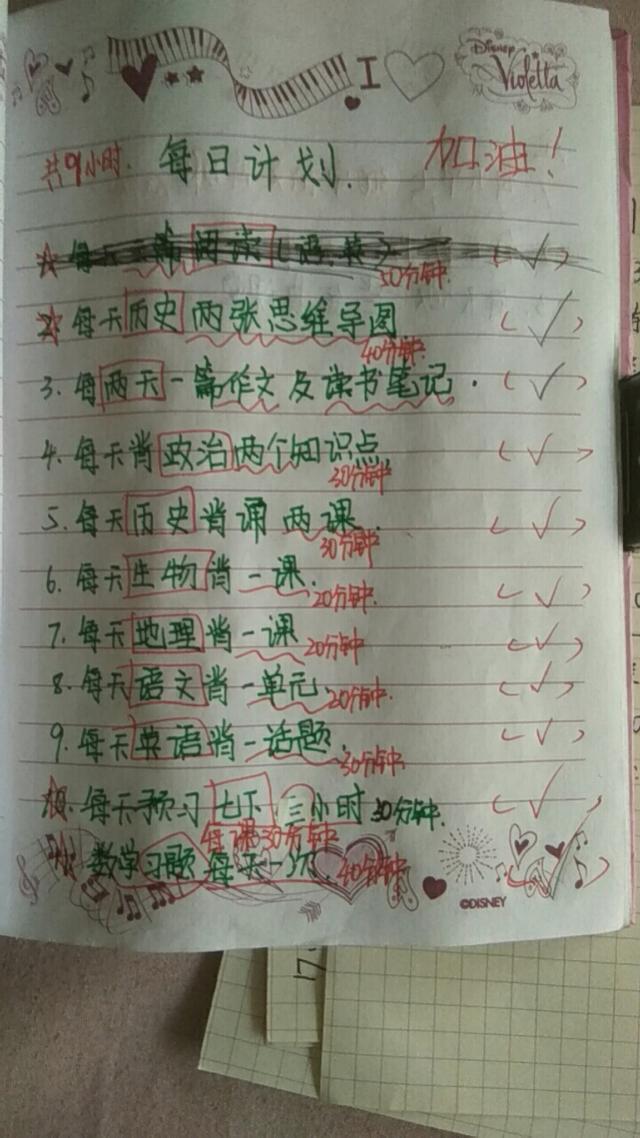 I
Disney
Violetta
共9小时. 每日计划. 加油!
每天一篇阅读(语、英) 50分钟.
2. 每天历史两张思维导图. 40分钟.
3. 每两天一篇作文及读书笔记.
4. 每天背政治两个知识点. 30分钟
5. 每天历史背诵两课. 30分钟
6. 每天生物背一课. 20分钟.
7. 每天地理背一课 20分钟
8. 每天语文背一单元. 20分钟.
9. 每天英语背一话题. 30分钟.
每天预习七下 三小时 30分钟.
每课30分钟
数学习题 每天一次. 40分钟
©DISNEY
17